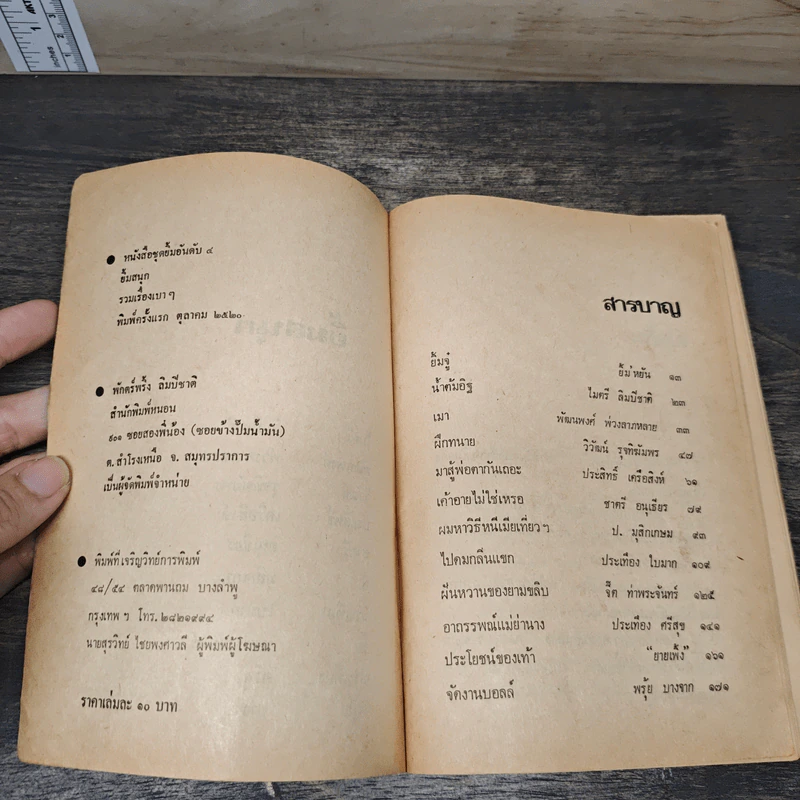 ● หนังสือชุดยิ้มอันดับ ๔
ยิ้มสนุก
รวมเรื่องเบา ๆ
พิมพ์ครั้งแรก ตุลาคม ๒๕๒๐
● พักตร์พริ้ง ลิมปิชาติ
สำนักพิมพ์หนอน
๙๐๑ ซอยสองพี่น้อง (ซอยข้างปั๊มน้ำมัน)
ต. สำโรงเหนือ จ. สมุทรปราการ
เป็นผู้จัดพิมพ์จำหน่าย
● พิมพ์ที่เจริญวิทย์การพิมพ์
๔๘/๕๔ ตลาดพานถม บางลำพู
กรุงเทพ ฯ โทร. ๒๘๒๑๙๙๔
นายสุรวิทย์ ไชยพงศาวลี ผู้พิมพ์ผู้โฆษณา
ราคาเล่มละ ๑๐ บาท
สารบาญ
ยิ้มจู๋ ยิ้ม หยัน ๑๓
น้ำตัมอิฐ ไมตรี ลิมปิชาติ ๒๓
เมา พัฒนพงศ์ พ่วงลาภหลาย ๓๓
ผีกทนาย วิวัฒน์ รุจทิฆัมพร ๔๗
มาสู้พ่อตากันเถอะ ประสิทธิ์ เครือสิงห์ ๖๑
เค้าอายไม่ใช่เหรอ ชาตรี อนุเธียร ๗๙
ผมหาวิธีหนีเมียเที่ยว ๆ ป. มุสิกเกษม ๙๓
ไปดมกลิ่นแขก ประเทือง ใบมาก ๑๐๙
ฝันหวานของยามขลิบ จี๊ด ท่าพระจันทร์ ๑๒๕
อาถรรพณ์แม่ย่านาง ประเทือง ศรีสุข ๑๔๑
ประโยชน์ของเท้า "ยายเพิ้ง" ๑๖๑
จัดงานบอลล์ พรุ้ย บางจาก ๑๗๑
1 2 3
inches